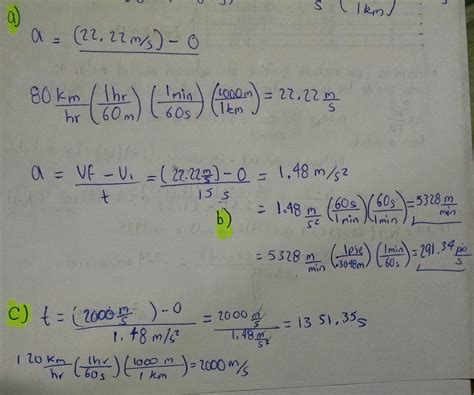 s (1km)
a)
a = (22.22 m/s) - 0
80 km/hr (1hr/60m) (1min/60s) (1000m/1km) = 22.22 m/s
a = VF - Vi / t = (22.22 m/s) - 0 / 15 s = 1.48 m/s²
b) = 1.48 m/s² (60s/1min) (60s/1min) = 5328 m/min
= 5328 m/min (1pie/.3048m) (1min/60s) = 291.34 pie/s
c) t = (2000 m/s) - 0 / 1.48 m/s² = 2000 m/s / 1.48 m/s² = 1351.35 s
120 km/hr (1hr/60s) (1000 m/1 km) = 2000 m/s